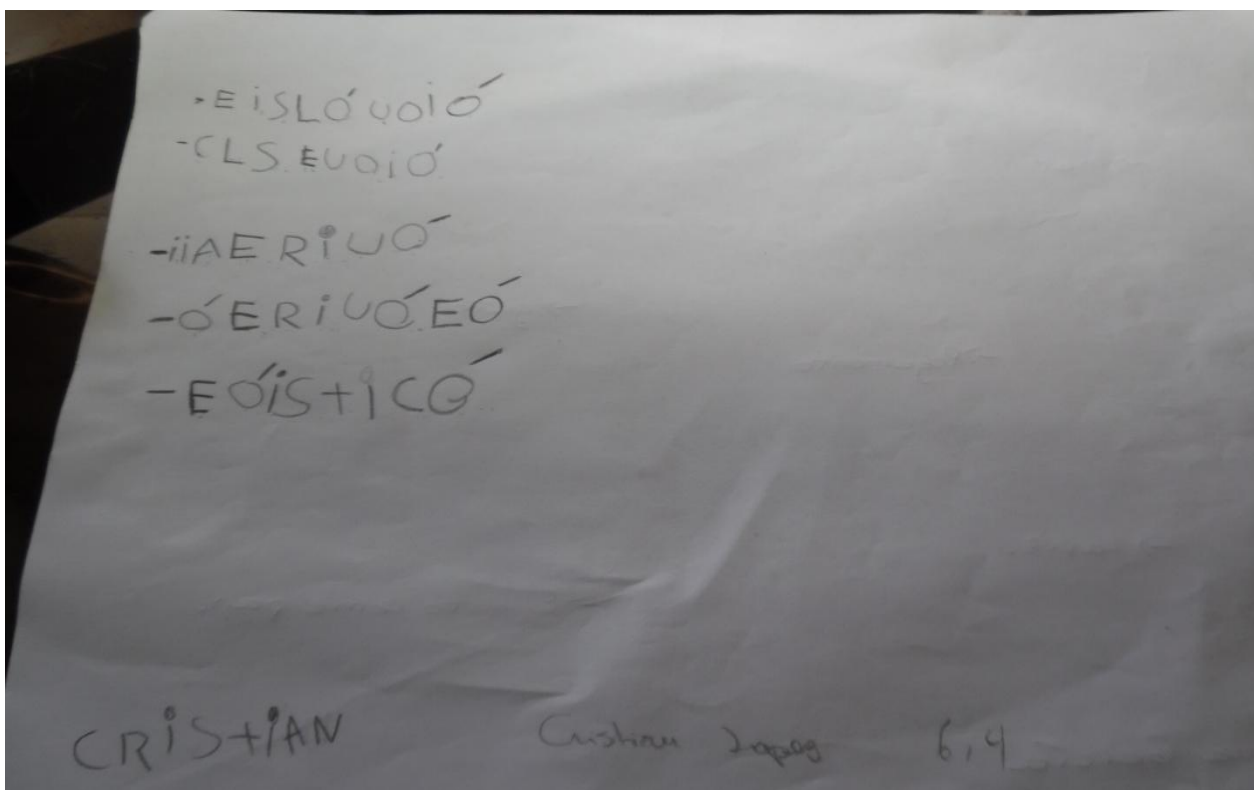 -EiSLÓUOIÓ
-CLS.EUOIÓ
-iiAERiUÓ
-ÓERiUÓEÓ
-EÓiStiCÓ
CRiStiAN Cristian 6,4